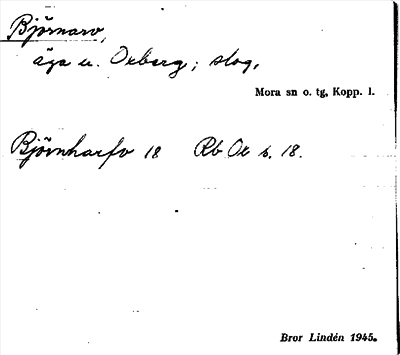 Björnarv,
äga u. Oxberg; slog.
Mora sn o. tg, Kopp. l.
Björnharfv 18 Rb Ox s. 18.
Bror Lindén 1945.